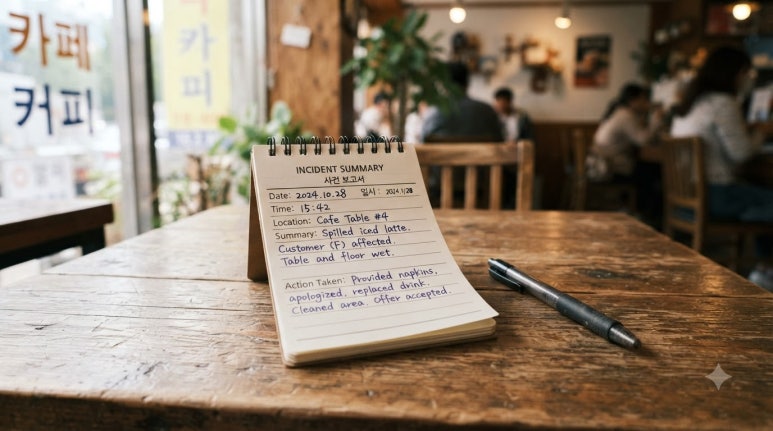 카페
커피
카
피
INCIDENT SUMMARY
사건 보고서
Date: 2024.10.28 일시: 2024.1/28
Time: 15:42
Location: Cafe Table #4
Summary: Spilled iced latte.
Customer (F) affected.
Table and floor wet.
Action Taken: Provided napkins,
apologized, replaced drink.
Cleaned area. Offer accepted.